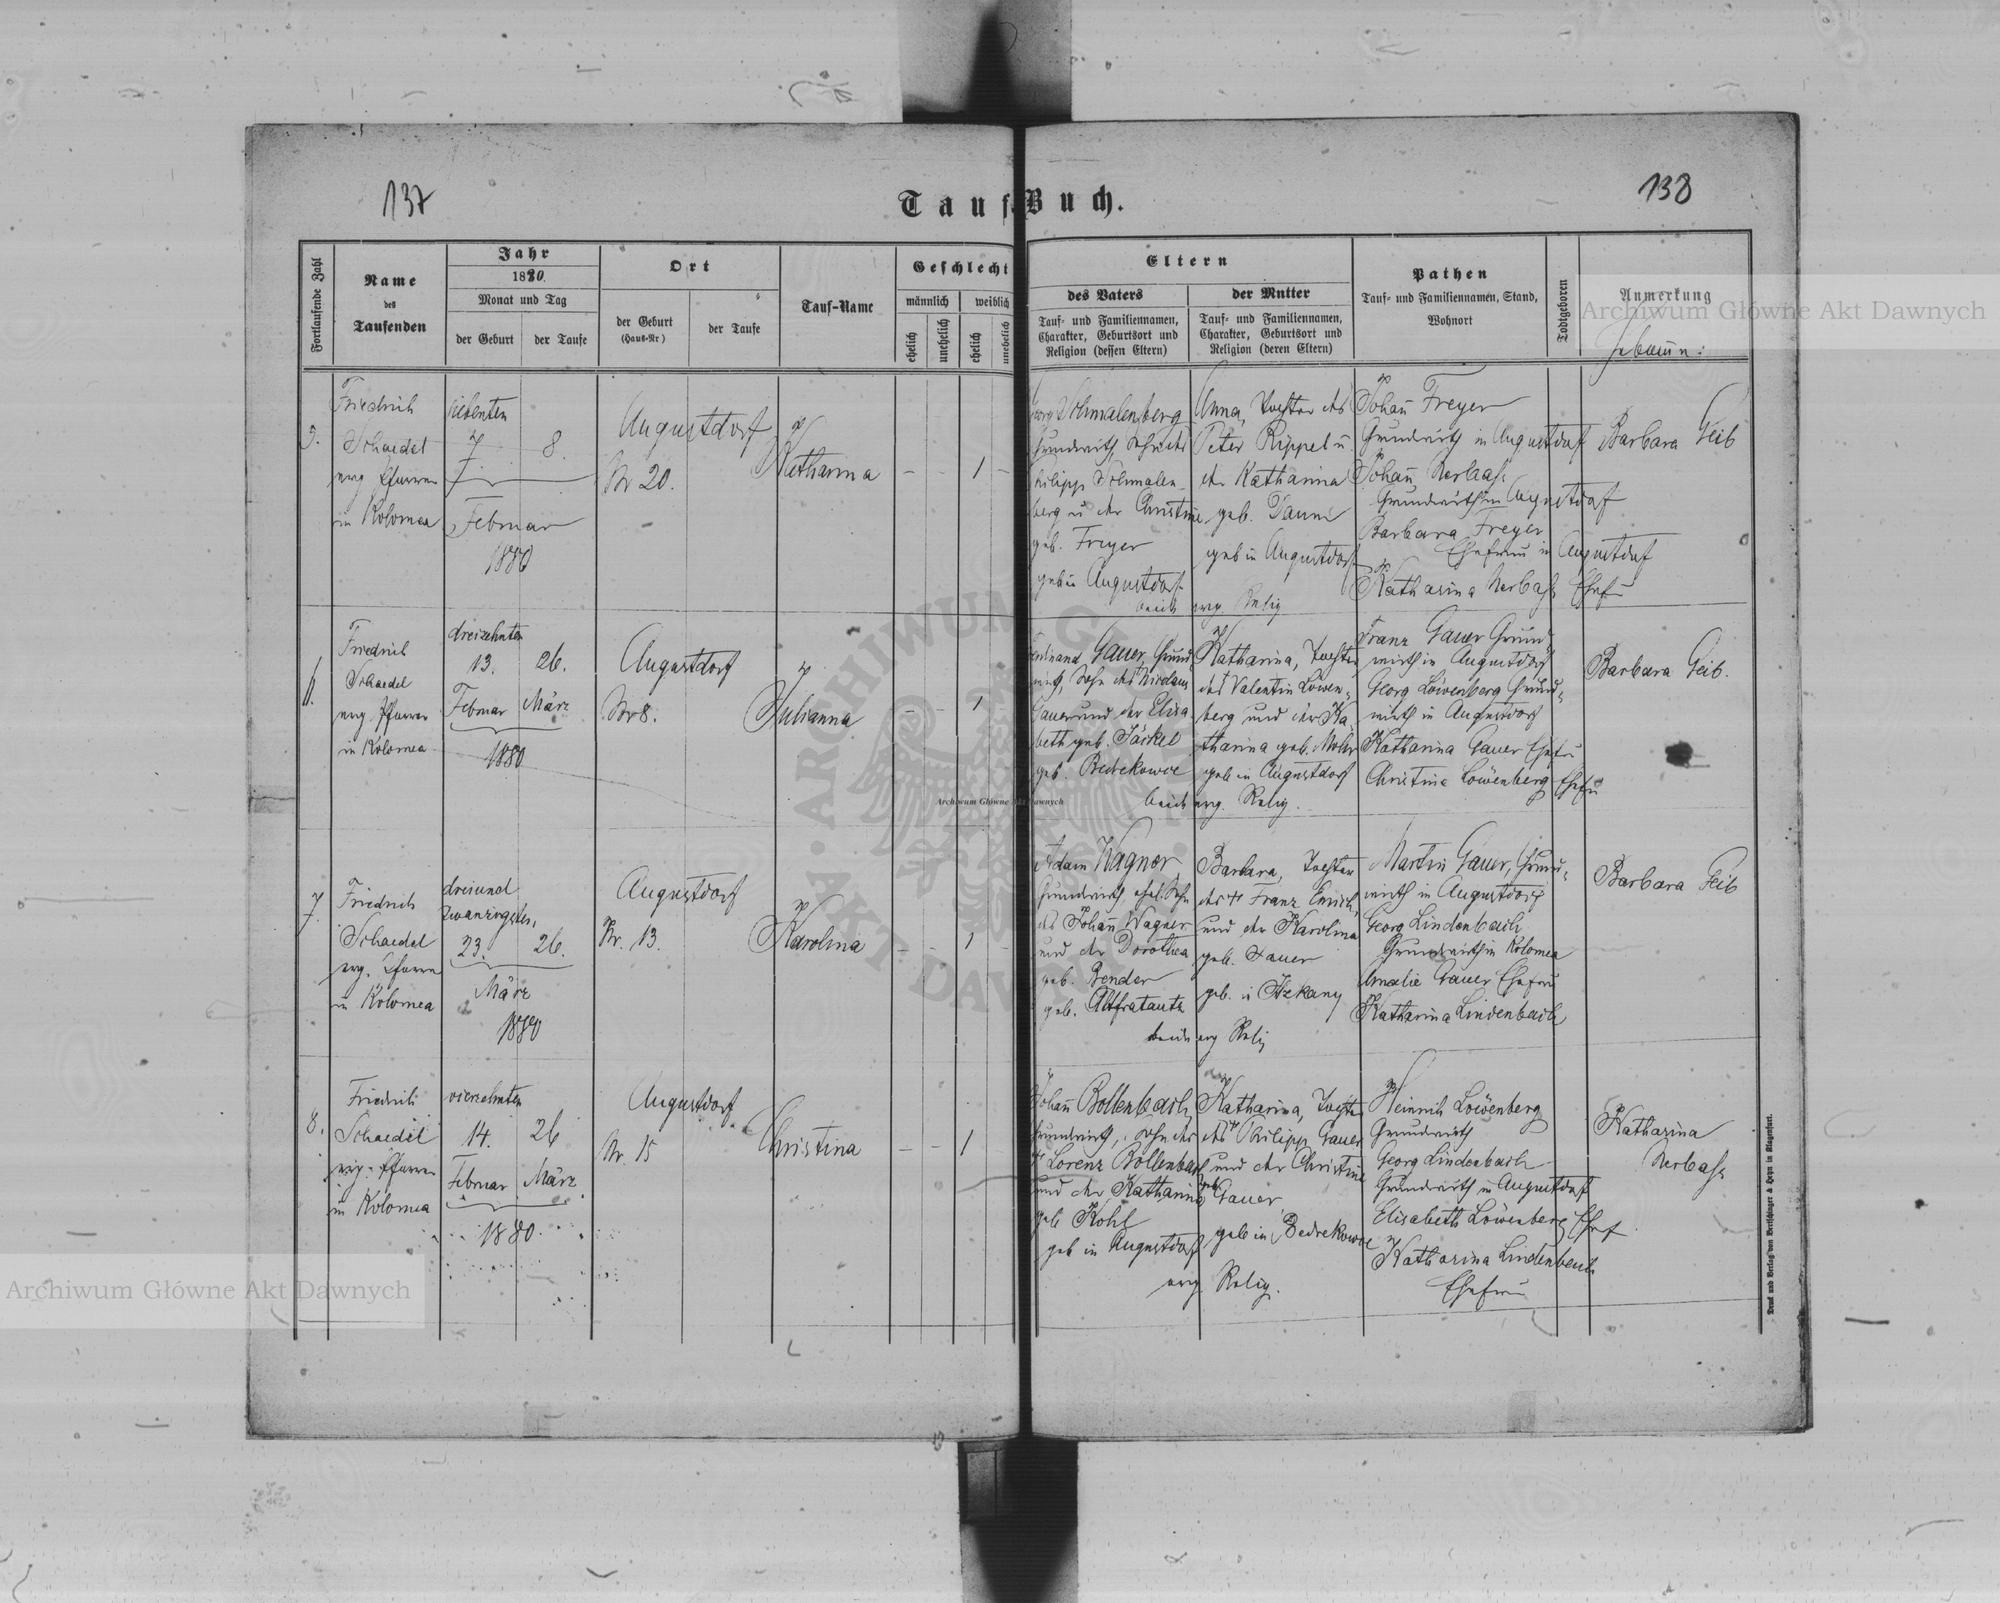 137
138
Tauf-Buch.
Fortlaufende Zahl
Name
des
Taufenden
Jahr
1880.
Monat und Tag
der Geburt
der Taufe
Ort
der Geburt
(Haus-Nr)
der Taufe
Tauf-Name
Geschlecht
männlich
weiblich
ehelich
unehelich
ehelich
unehelich
Eltern
des Vaters
Tauf- und Familiennamen,
Charakter, Geburtsort und
Religion (dessen Eltern)
der Mutter
Tauf- und Familiennamen,
Charakter, Geburtsort und
Religion (deren Eltern)
Pathen
Tauf- und Familiennamen, Stand,
Wohnort
Todtgeboren
Anmerkung
Archiwum Główne Akt Dawnych
5.
Friedrich
Schaedel
evg Pfarrer
in Kolomea
siebenten
7
8.
Februar
1880
Augustdorf
Nr 20.
Katharina
- - 1 -
Schmalenberg
Grundwirth, Sohn des
Philipp Schmalen-
berg u der Christine
geb. Freyer
geb in Augustdorf
Anna, Tochter des
Peter Rippel u.
der Katharina
geb.
geb in Augustdorf
beide evg. Relig
Johañ Freyer
Grundwirth in Augustdorf
Johañ Nerbaß
Grundwirth in Augustdorf
Barbara Freyer
Ehefrau in Augustdorf
Katharina Nerbaß Ehef
Barbara Geib
6.
Friedrich
Schaedel
evg Pfarrer
in Kolomea
dreizehnten
13. 26.
Februar März
1880
Augustdorf
Nr 8.
Julianna
- - 1
Ferdinand Gauer, Grund
wirth, Sohn des Nicolaus
Gauer und der Elisa
beth geb. Jäckel
geb. Bedrekowce
Katharina, Tochter
des Valentin Löwen-
berg und der Ka-
tharina geb. Mohr
geb in Augustdorf
beide evg. Relig.
Franz Gauer Grund
wirth in Augustdorf
Georg Löwenberg Grund-
wirth in Augustdorf
Katharina Gauer Ehefr
Christine Löwenberg Ehefr
Barbara Geib.
7.
Friedrich
Schaedel
evg. Pfarrer
in Kolomea
dreiund
zwanzigsten,
23. 26.
März
1880
Augustdorf
Nr. 13.
Karolina
- - 1
Adam Wagner
Grundwirth, ehel. Sohn
des Johañ Wagner
und der Dorothea
geb. Bender
geb. Altfratautz
Barbara, Tochter
des † Franz Emrich,
und der Karolina
geb.
geb. in Itzkany
beide evg Relig
Martin Gauer, Grund-
wirth in Augustdorf
Georg Lindenbach
Grundwirth in Kolomea
Amalie Gauer Ehefrau
Katharina Lindenbach
Barbara Geib
8.
Friedrich
Schaedel
evg. Pfarrer
in Kolomea
vierzehnten
14. 26
Februar März
1880.
Augustdorf
Nr. 15
Christina
- - 1
Johañ Bollenbach
Grundwirth, Sohn des
† Lorenz Bollenbach
und der Katharina
geb Kohl
geb in Augustdorf
Katharina, Tochter
des † Philipp Gauer
und der Christine
geb. Gauer
geb in Bedrekowce
evg. Relig.
Heinrich Löwenberg
Grundwirth
Georg Lindenbach
Grundwirth in Augustdorf
Elisabeth Löwenberg Ehef
Katharina Lindenbach
Ehefrau
Katharina
Nerbaß
Archiwum Główne Akt Dawnych
ARCHIWUM GŁÓWNE AKT DAWNYCH
Archiwum Główne Akt Dawnych
Druck und Verlag von Bertschinger & Heyn in Klagenfurt.